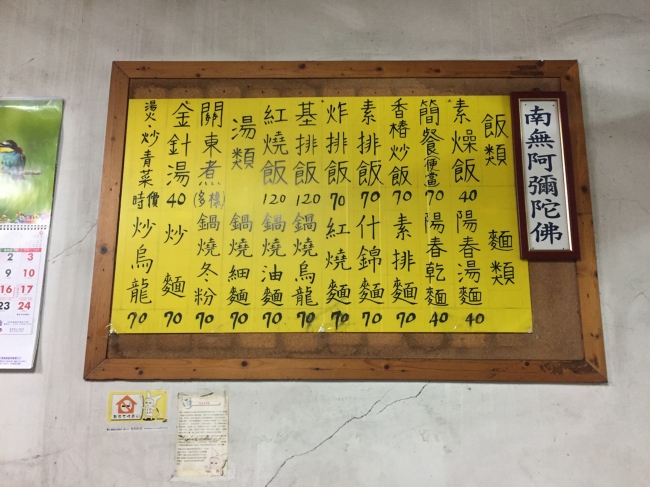 南無阿彌陀佛
飯類 麵類
素燥飯 40 陽春湯麵 40
簡餐便當 70 陽春乾麵 40
香椿炒飯 70 素排麵 70
素排飯 70 什錦麵 70
炸排飯 70 紅燒麵 70
基排飯 120 鍋燒烏龍 70
紅燒飯 120 鍋燒油麵 70
湯類 鍋燒細麵 70
關東煮(多樣) 鍋燒冬粉 70
金針湯 40 炒麵 70
燙、炒青菜 時價 炒烏龍 70
2 3
9 10
16 17
23 24